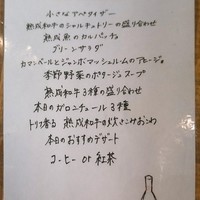 小さなアペタイザー
熟成和牛のシャルキュトリーの盛り合わせ
熟成魚のカルパッチョ
グリーンサラダ
カマンベールとジャンボマッシュルームのアヒージョ
季節野菜のポタージュスープ
熟成和牛3種の盛り合わせ
本日のガロニチュール3種
トリュフ香る 熟成和牛の炊きこみおこわ
本日のおすすめデザート
コーヒー or 紅茶